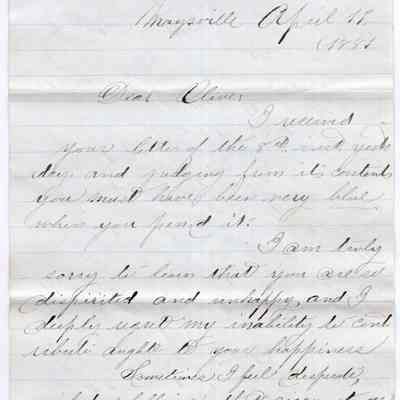 Maysville April 11
1881
Dear Oliver
I received
your letter of the 8th inst yester
day and judging from its contents
you must have been very blue
when you pen'd it.
I am truly
sorry to learn that you are so
dispirited and unhappy, and I
deeply regret my inability to cont
ribute aught to your happiness
Sometimes I feel desperate,